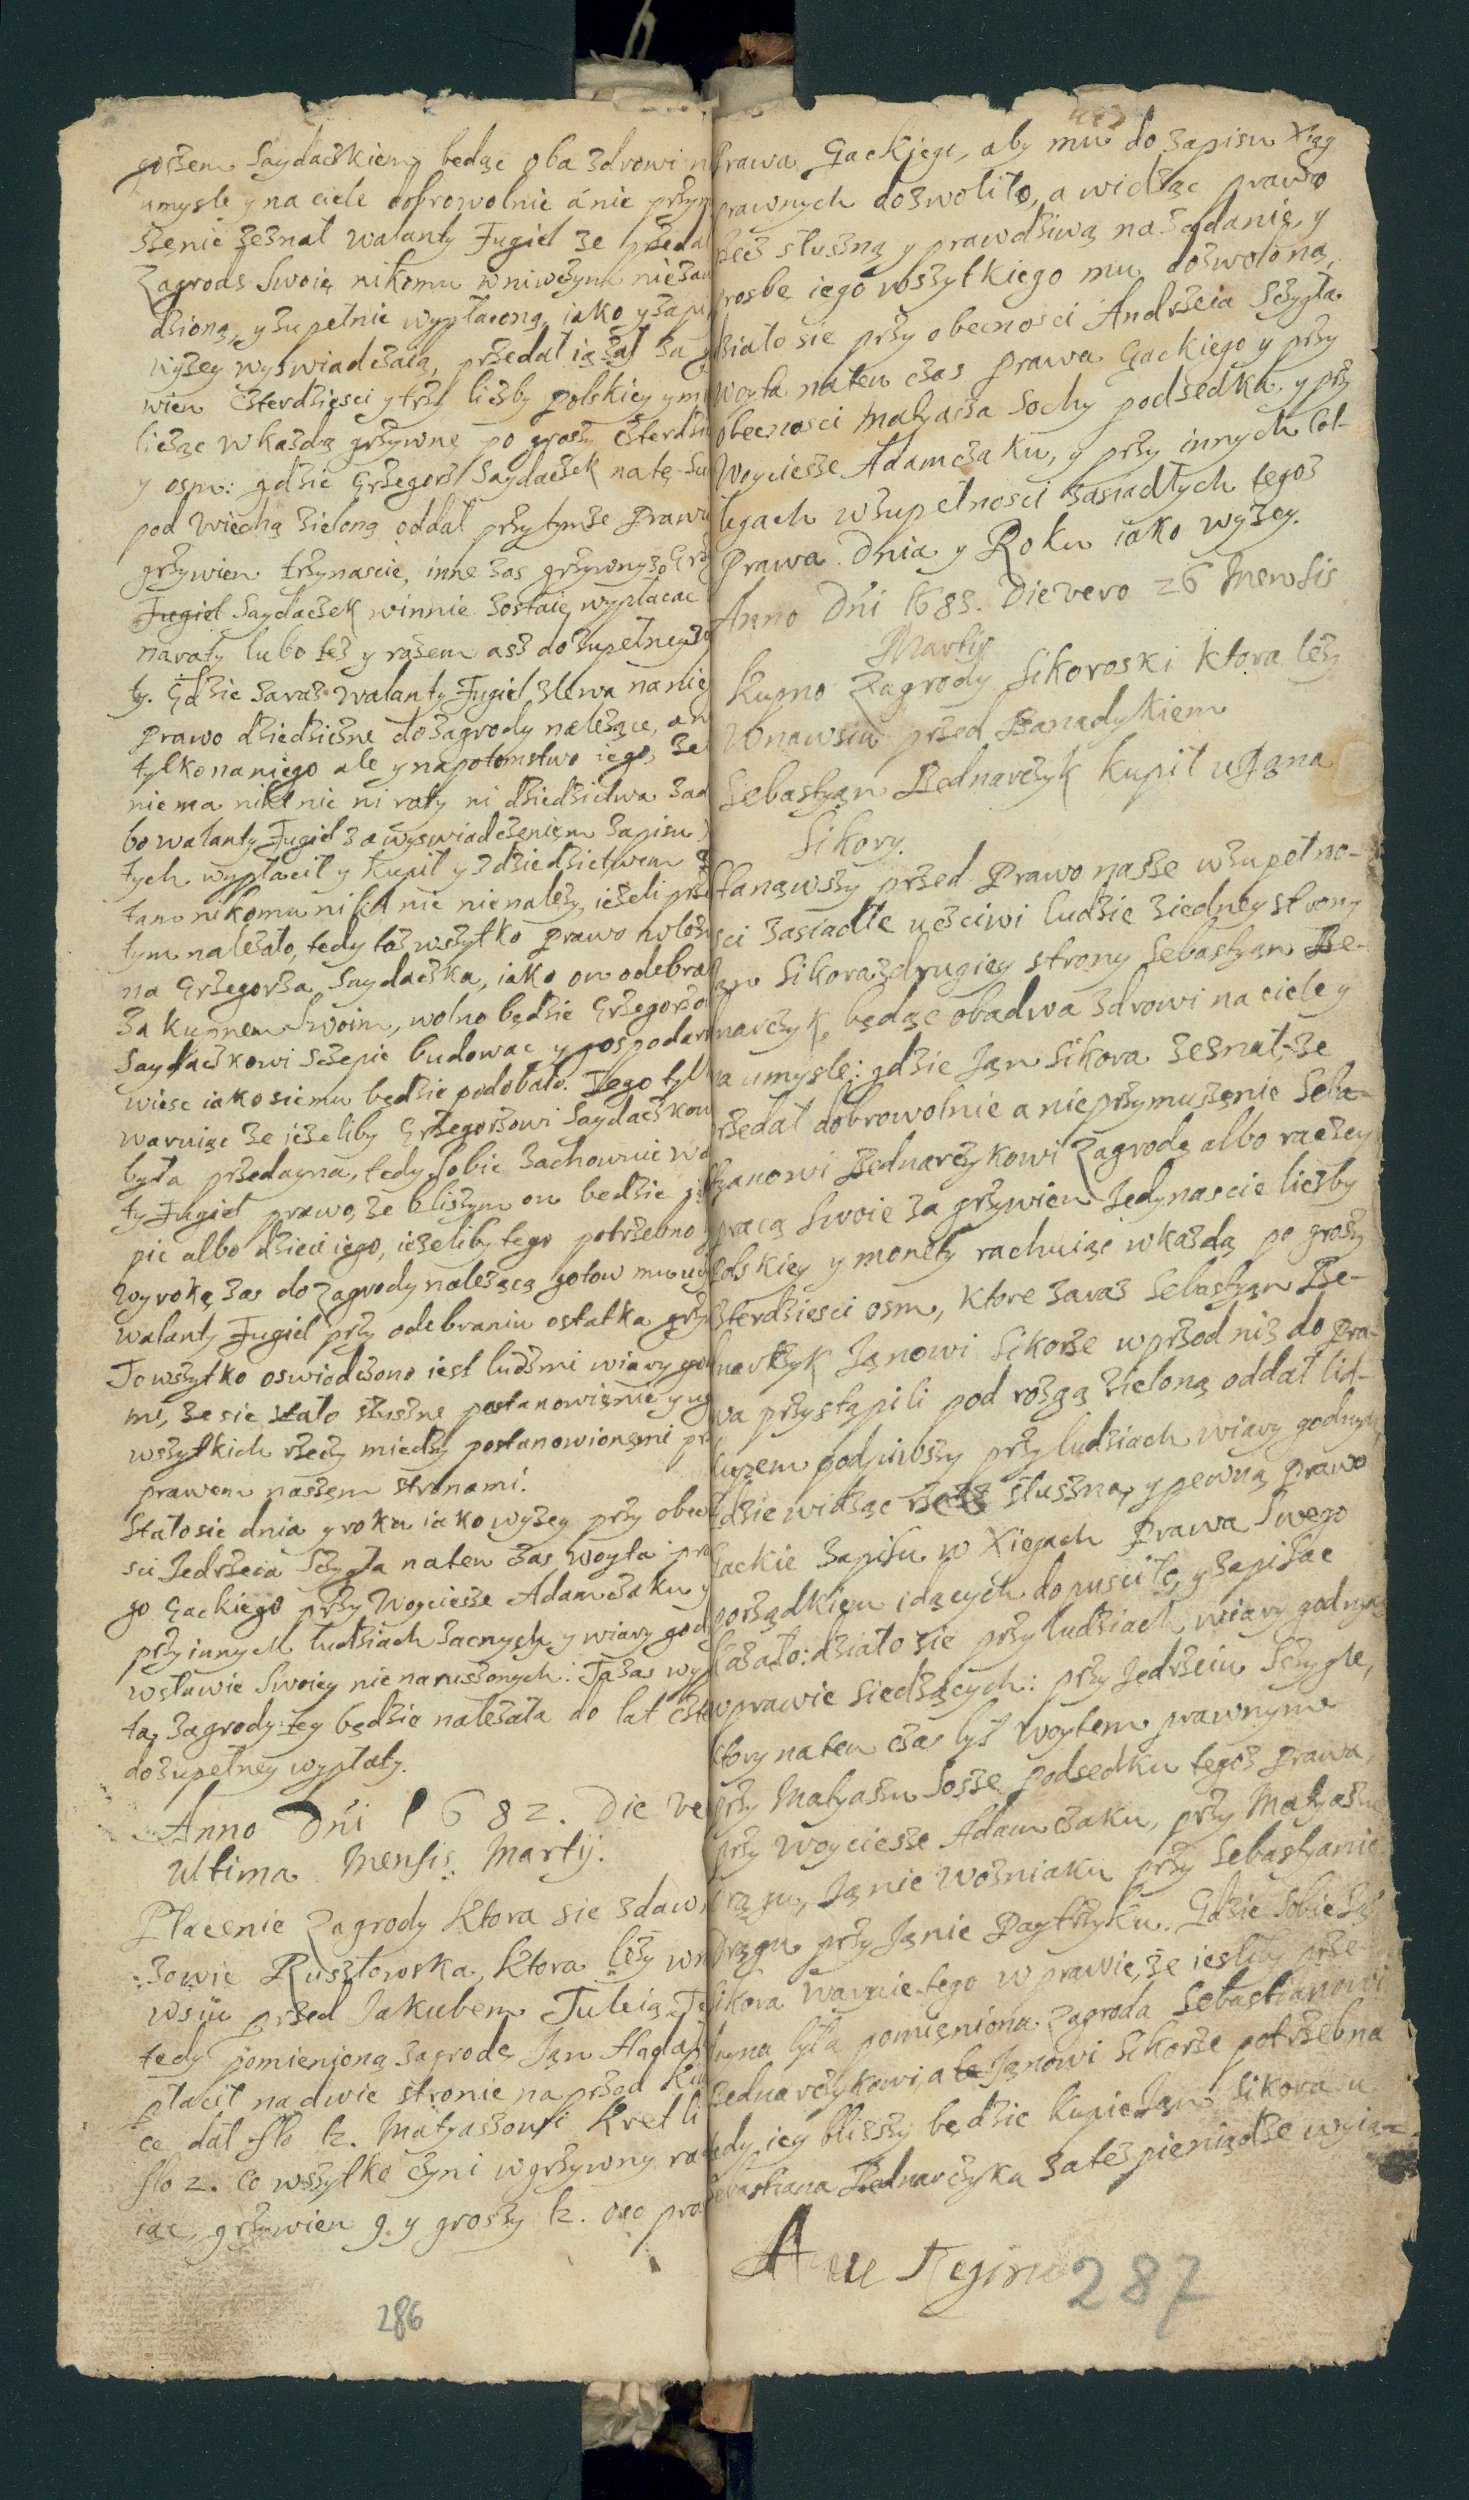 gorzem Saydaczkiem, bedąc oba zdrowi n
umysle y na ciele dobrowolnie á nie przym
szenie zeznał Walanty Fugiel ze przedał
Zagrodę Swoię nikomu w niwczym nie zaw
dzioną, y zupełnie wypłaconą, iako y zapi
wyzey wyswiadczaią, przedał ią zas za g
wien czterdziesci y trzy liczby Polskiey y mo
licząc w kazdą grzywnę po groszy czterdzie
y osm: gdzie Grzegorz Saydaczek na tę Su
pod wiechą zieloną oddał przy tymze Prawi
grzywien trzynascie, inne zas grzywny Grz
Fugiel Saydaczek winnie zostaie wypłacac
na raty lubo tez y razem asz do zupełney za
ty. Gdzie zaraz Walanty Fugiel zlewa na nie
Prawo dziedziczne do zagrody nalezące, a n
tylko na niego ale y na potomstwo iego, ze
nie ma nikt nic ni raty ni dziedzictwa zad
bo Walanty Fugiel za wyswiadczeniem zapisu
tych wypłacił y kupił y z dziedzictwem
tam nikomu nikt nic nie nalezy, iezeli prze
tym nalezało, tedy toz wszytko Prawo wloz
na Grzegorza Saydaczka, iako on odebrał
za kupnem Swoim, wolno będzie Grzegorzo
Saydaczkowi sczepic budowac y gospodar
wiesc iako sie mu będzie podobało. Tego tyl
waruiąc ze iezeliby Grzegorzowi Saydaczkow
była przedayna, tedy Sobie zachownie Wa
ty Fugiel prawo, ze bliszym on bedzie
pic albo dzieci iego, iezeliby tego potrzebno
Wyrokę zas do Zagrody nalezącą gotow mu
Walanty Fugiel przy odebraniu ostatka grzy
To wszytko oswiadczono iest ludzmi wiary god
mi, ze sie stało słuszne postanowienie y ug
wszytkich rzeczy miedzy postanowionemi prz
prawem naszem stronami.
Stało sie dnia y roku iako wyzey przy obecn
sci Jedrzeia Sczygła na ten czas woyta pra
go Gackiego przy Woyciesze Adamczaku y
przy innych ludziach zacnych y wiary god
w sławie Swoiey nie naruszonych. Ta zas wyp
ta zagrody tey będzie nalezała do lat czte
do zupełney wypłaty.
Anno Dni 1682. Die ve
Ultima Mensis Martij.
Płacenie Zagrody ktora sie zdaw
zowie Rusztowska, ktora lezy w n
wsiu przed Jakubem Tulcią. Te
tedy pomienioną zagrodę Jan Maga
płacił na dwie stronie na przod Ku
ce dał flo 12. Matyaszowi Kretli
flo 2. co wszytko czyni w grzywny rach
iąc, grzywien 9 y groszy 12. oco pro
Prawa Gackiego, aby mu do zapisu Xiąg
prawnych dozwoliło, a widząc prawo
rzecz słuszną y prawdziwą na ządanie, y
prosbę iego wszytkiego mu dozwolono,
działo sie przy obecnosci Andrzeia Sczygła
Woyta na ten czas Prawa Gackiego y przy
obecnosci Matyasza Sochy podsedka y przy
Woyciesze Adamczaku, y przy innych Col-
legach w zupełnosci zasiadłych tegoz
Prawa. Dnia y Roku iako wyzey.
Anno Dni 1683. Die vero 26 Mensis
Martij
Kupno Zagrody Sikoroski ktora lezy
Wnawsiu przed Banadykiem
Sebastyan Bednarczyk kupił u Jana
Sikory.
Stanąwszy przed Prawo nasze w zupełno-
sci zasiadłe ucsciwi ludzie z iedney strony
Jan Sikora z drugiey strony Sebastyan Be-
dnarczyk, będąc obadwa zdrowi na ciele y
na umysle: gdzie Jan Sikora zeznał, ze
przedał dobrowolnie a nie przymuszenie Seba-
styanowi Bednarczykowi Zagrodę albo raczey
pracą Swoię za grzywien Jedynascie liczby
Polskiey y monety rachuiąc w kazdą po groszy
czterdziesci osm, ktore zaraz Sebastyan Be-
dnarczyk Janowi Sikorze w przod niz do Pra-
wa przystąpili pod rozgą zieloną oddał lid-
kupem podpiwszy przy ludziach wiary godnych,
gdzie widząc rzecz słuszną y pewną Prawo
Gackie zapisu w Xiegach Prawa Swego
porządkiem idących dopusciło, y zapisac
kazało: działo sie przy ludziach wiary godnych
w prawie siedzących: przy Jedrzeiu Sczygle,
ktory na ten czas był woytem prawnym
przy Matyaszu Sosze podsedku tegoz Prawa,
przy Woyciesze Adamczaku, przy Matyaszu
Drągu, Janie Wozniaku przy Sebastyanie
Drągu przy Janie Paytrzyku. Gdzie Sobie Jan
Sikora waruie tego w prawie, ze iesliby prze-
dayna była pomieniona Zagroda Sebastianowi
Bednarczykowi, a ta Janowi Sikorze potrzebna
tedy iey bliszszy będzie kupic Jan Sikora u
Sebastiana Bednarczyka za tez pieniądze wyią=
Aue Regina
286
287